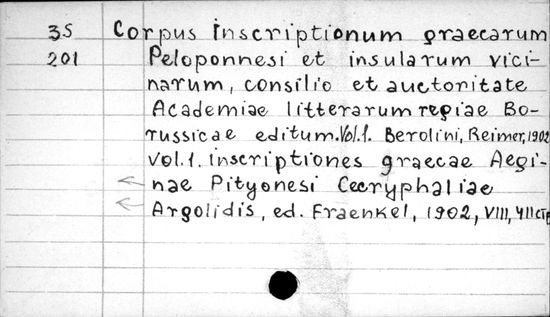 35 Corpus inscriptionum graecarum
201 Peloponnesi et insularum vici-
narum, consilio et auctoritate
Academiae litterarum regiae Bo-
russicae editum. Vol.1. Berolini, Reimer, 1902
Vol.1. inscriptiones graecae Aegi-
nae Pityonesi Cecryphaliae
Argolidis, ed. Fraenkel, 1902, VIII,